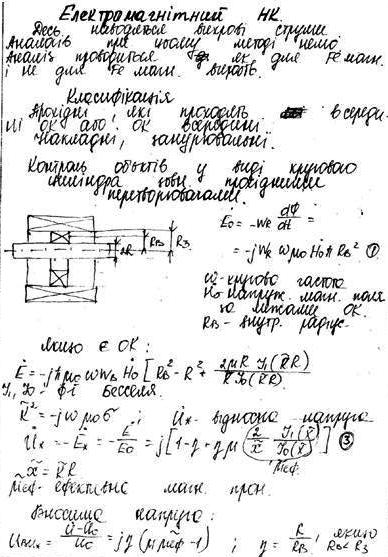 Електромагнітний НК.
Десь наводяться вихрові струми
Аналогів при цьому методі немає
Аналіз проводиться як для Fe магн.
і не для Fe магн.
Класифікація
Прохідні, які проходять всереди-
ні ОК або ОК всередині
Накладні, занурювальні.
Контроль об'єктів у виді кругового
циліндра зовн. прохідними
перетворювачами.
2R RB R3
E₀ = -Wк dФ/dt =
= -j Wк ω μ₀ Ḣ₀ π RB² ①
ω - кругова частота
H₀ напруж. магн. поля
за межами ОК.
RB - внутр. радіус
якщо є ОК:
Ė = -jπμ₀ ω Wк Ḣ₀ [RB² - R² + 2μR J₁(K̃R) / K̃ J₀(K̃R)
J₁, J₀ - ф-ї Бесселя.
K̃² = -jωμ₀σ ; U̇x - відносна напруга
U̇x = -Ėx = -Ė/E₀ = j[1-η+ημ(2/x̃ J₁(x̃)/J₀(x̃))] ③
μ̃еф.
x̃ = K̃R
μ̃еф - ефективна магн. прон.
Вносима напруга:
U̇вн = U̇-U̇₀ / U₀ = jη(μμ̃еф-1) ; η = R/RB, якщо